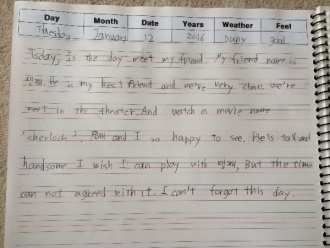 Day Month Date Years Weather Feel
Tuesday January 12 2016 Suny good
Today, Is the day meet my friend. My friend name is
He is my best friend and we're very close. we're
meet in the theater. And watch a movie name
'sherlock'. and I so happy to see. He's tall and
handsome. I wish I can play with But the time
can not agreed with it. I can't forgot this day.